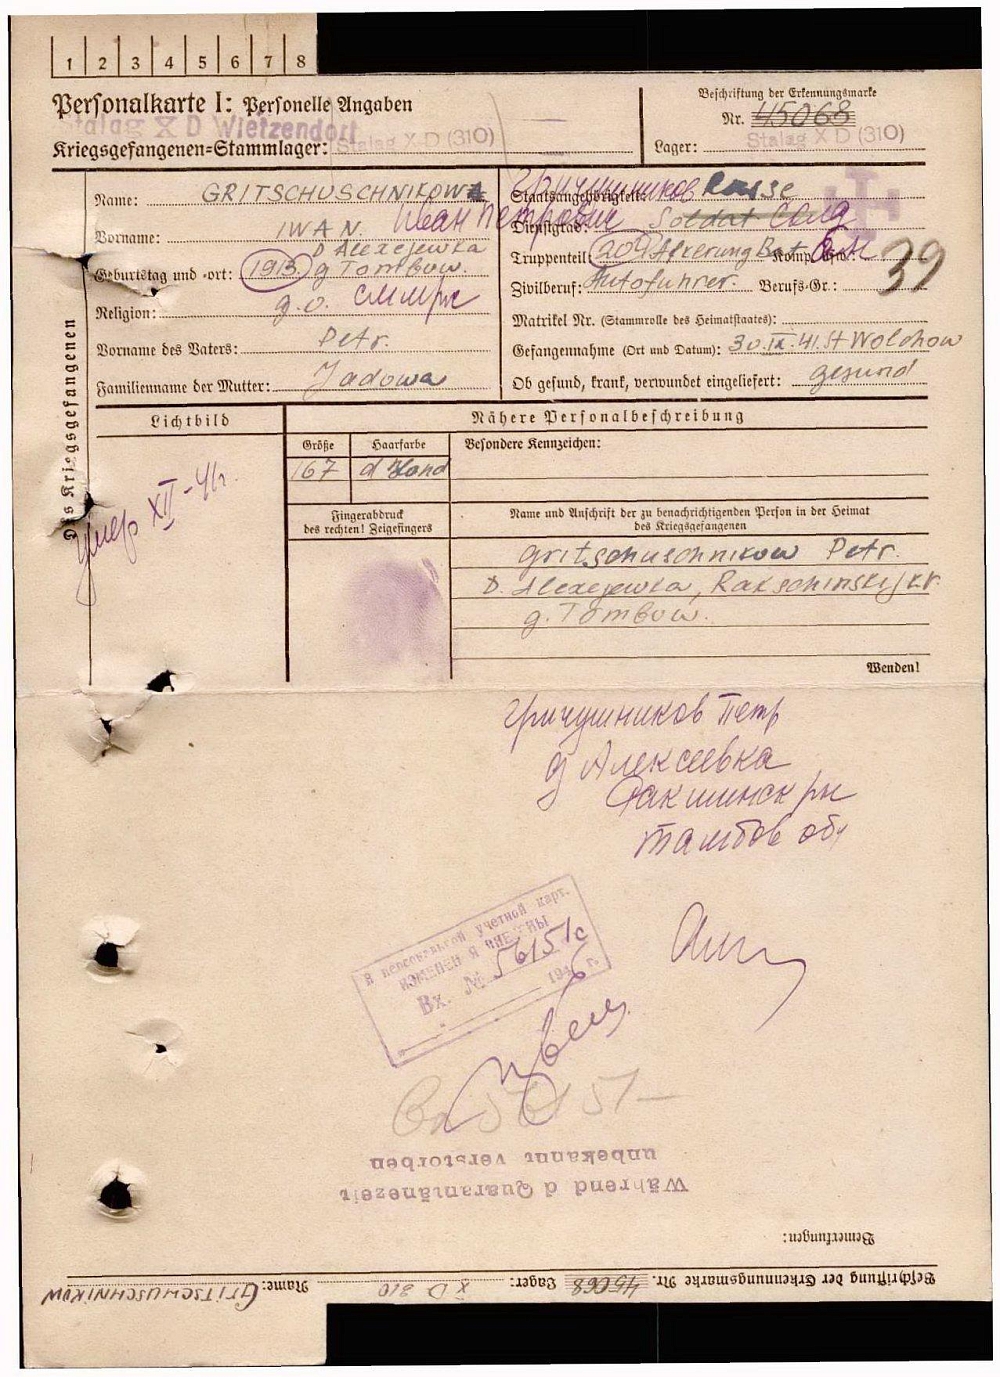 1 2 3 4 5 6 7 8
Personalkarte I: Personelle Angaben
Stalag X D Wietzendorf
Kriegsgefangenen-Stammlager: Stalag X D (310)
Beschriftung der Erkennungsmarke
Nr. 45068
Lager: Stalag X D (310)
Des Kriegsgefangenen
Name: GRITSCHUSCHNIKOW
Гричушников
Vorname: IWAN. Иван Петрович
Geburtstag und -ort: 1913 D Alexejewka
g Tombow.
Religion: g.o.
Vorname des Vaters: Petr.
Familienname der Mutter: Jadowa
Staatsangehörigkeit: Russe
Dienstgrad: Soldat Солд
Truppenteil: 209 Komp. usw.:
Zivilberuf: Autofuhrer. Berufs-Gr.: 39
Matrikel Nr. (Stammrolle des Heimatstaates):
Gefangennahme (Ort und Datum): 30.IX.41. St Wolchow
Ob gesund, krank, verwundet eingeliefert: gesund
Lichtbild
умер XII-41г.
Nähere Personalbeschreibung
Größe Haarfarbe Besondere Kennzeichen:
167 d blond
Fingerabdruck
des rechten! Zeigefingers
Name und Anschrift der zu benachrichtigenden Person in der Heimat
des Kriegsgefangenen
Gritschuschnikow Petr.
D. Alexejewka, Rakschinskij kr.
g. Tombow.
Wenden!
Гричушников Петр
д Алексеевка
Ракшинск рн
Тамбов обл
В персональной учетной карт.
ИЗМЕНЕНИЯ ВНЕСЕНЫ
Вх. № 56151с
1946 г.
56151
Während d Quarantänezeit
unbekannt verstorben
Bemerkungen:
Beschriftung der Erkennungsmarke Nr. 45068 Lager: X D 310 Name: GRITSCHUSCHNIKOW